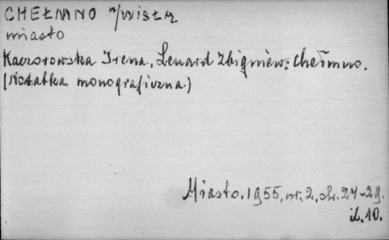 CHEŁMNO n/WISŁĄ
miasto
Kaczorowska Irena, Lenard Zbigniew: Chełmno.
(Notatka monograficzna.)
Miasto. 1955, nr. 2, str. 27-29.
il. 10.